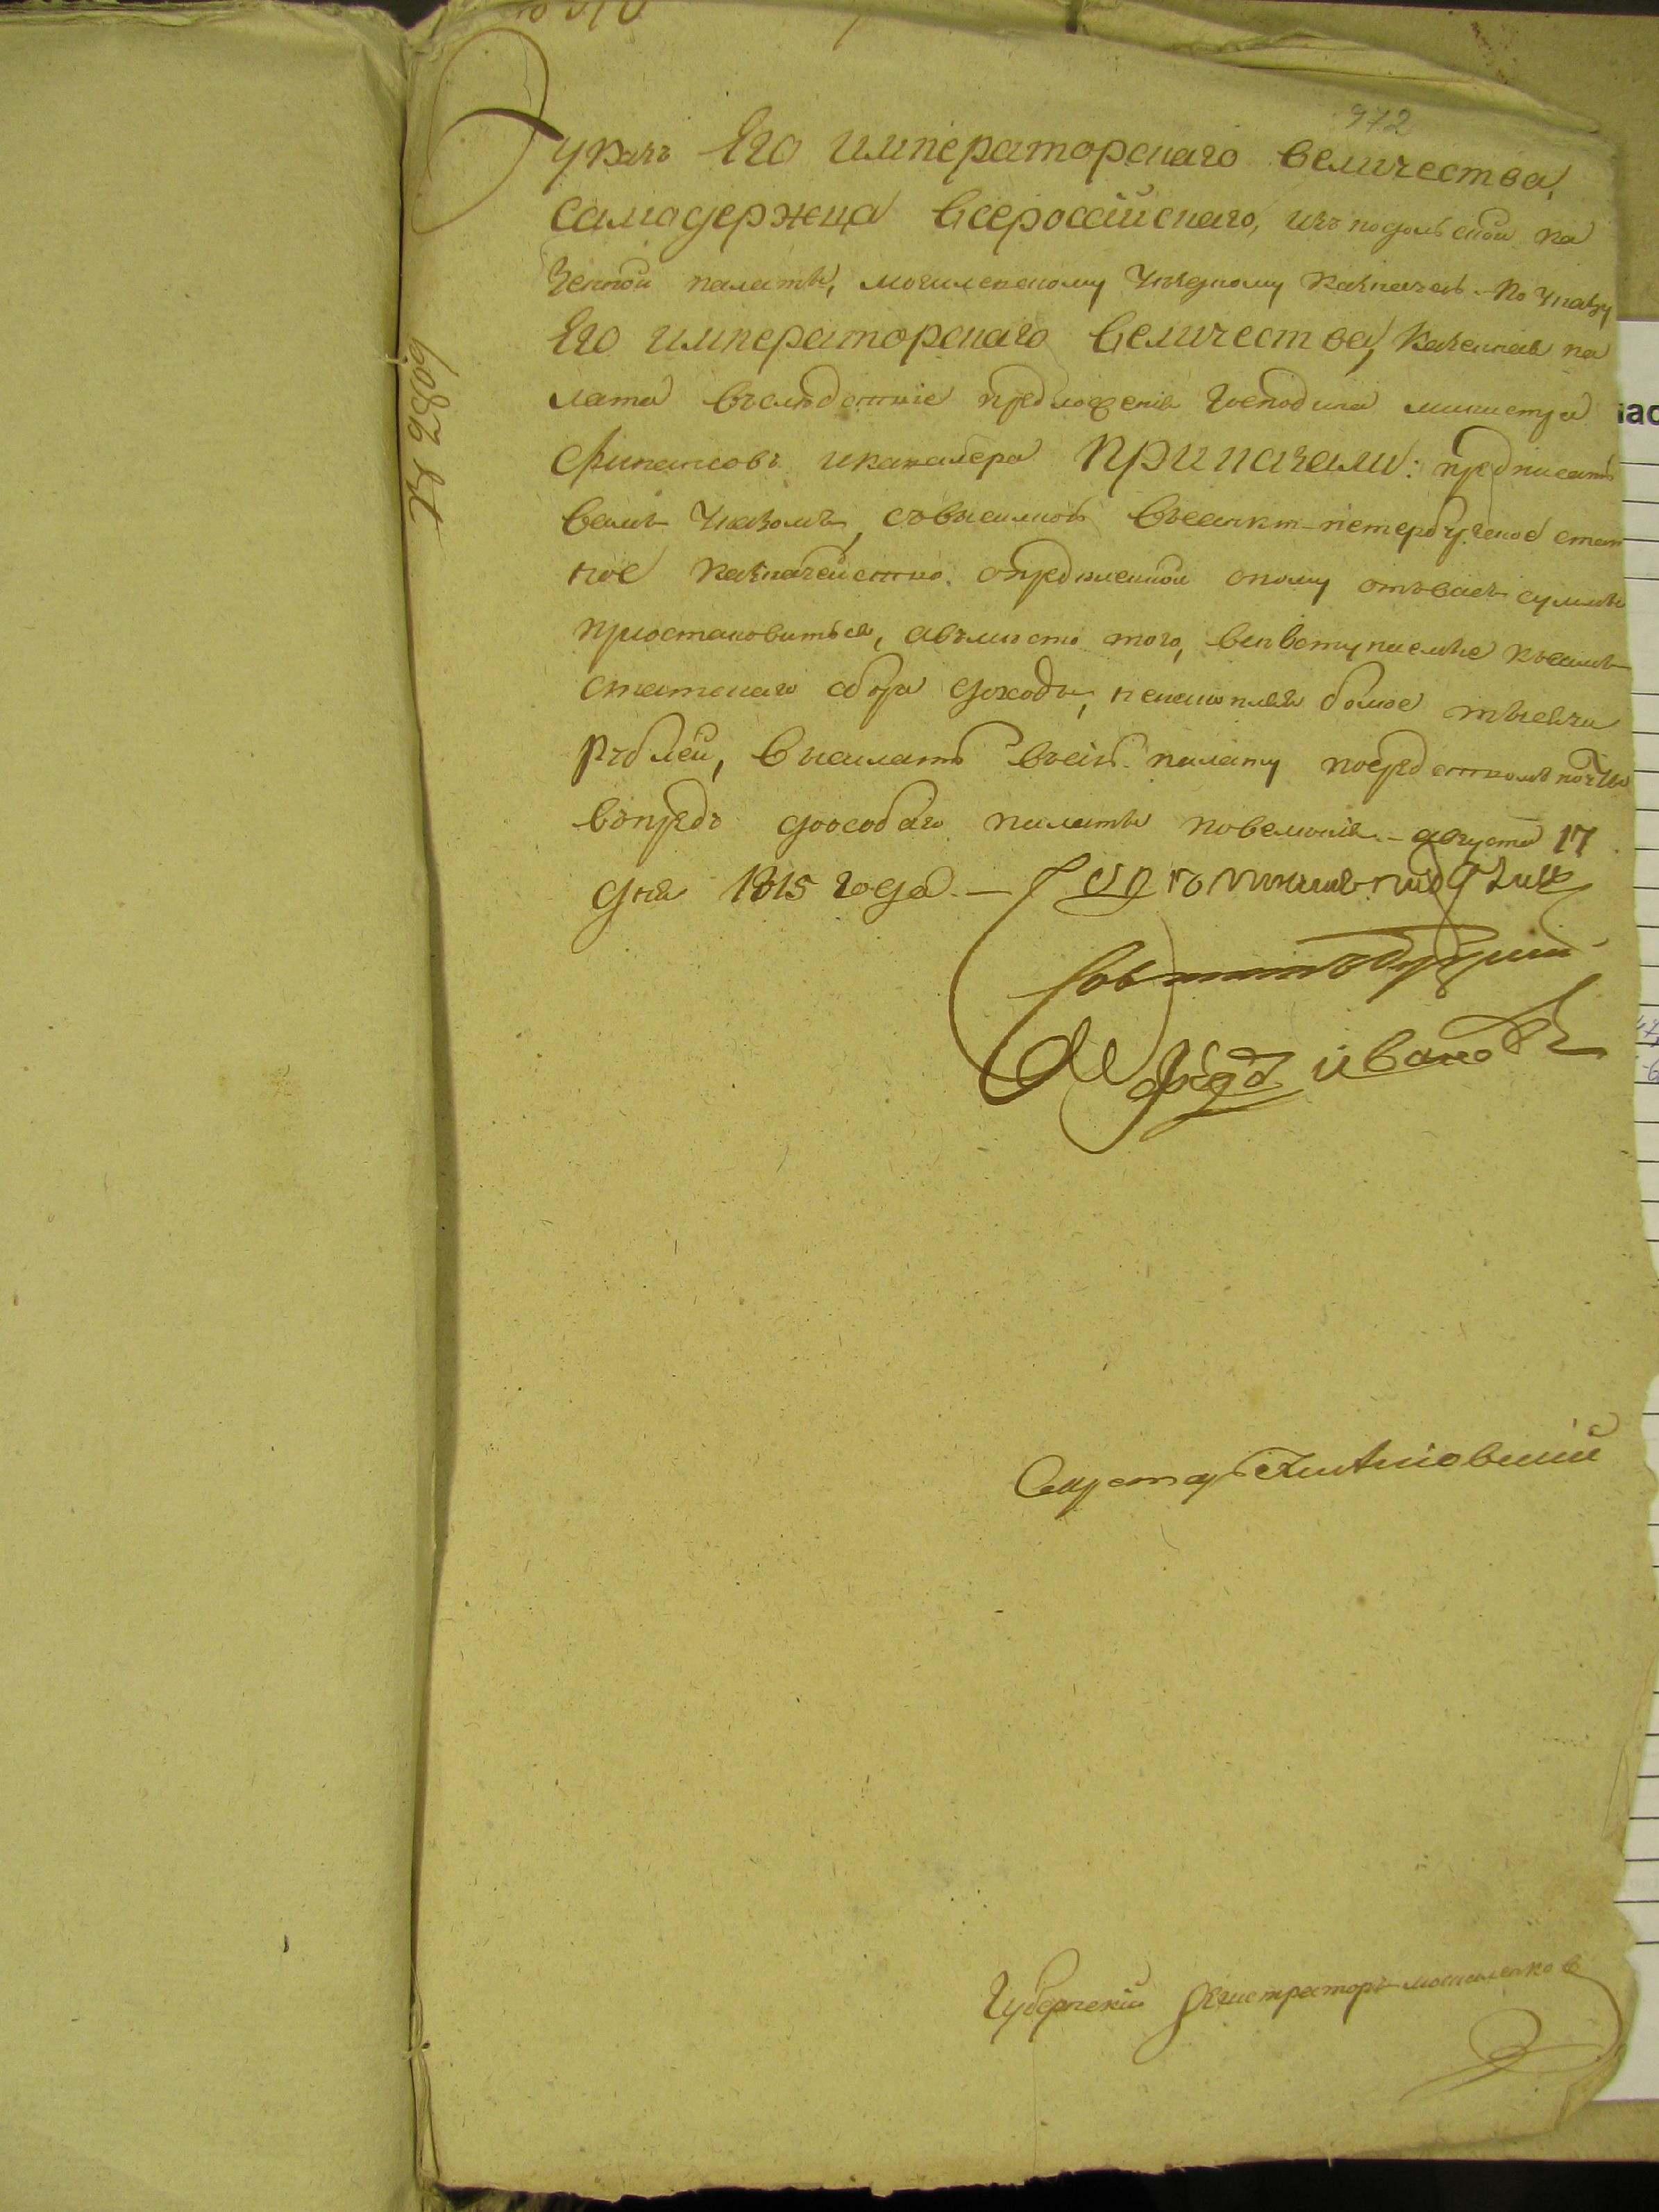 972
указъ Его императорскаго величества,
самодержца всероссійскаго, изъ подольской ка
зенной палаты, могилевскому уездному казначею. - по указу
Его императорскаго величества, казенная па
лата въследствіе предложенія господина министра
финансовъ икавалера приказали: предписать
вамъ указомъ, съвысылкою въсанкт-петербугское стат
ное казначейство определенной оному отъвасъ суммы
приостановиться, авъместо того, всевступаемые
статскаго сбора доходы, ненакопляя более тысячи
рублей, высылать въсію палату посредствомъ почты
впредь доособаго палаты повеленія. - августа 17
дня 1815 года. -
Советникъ
Асе: Федоръ ивановъ
Секретарь
Губернскій регистраторъ
№ 28809